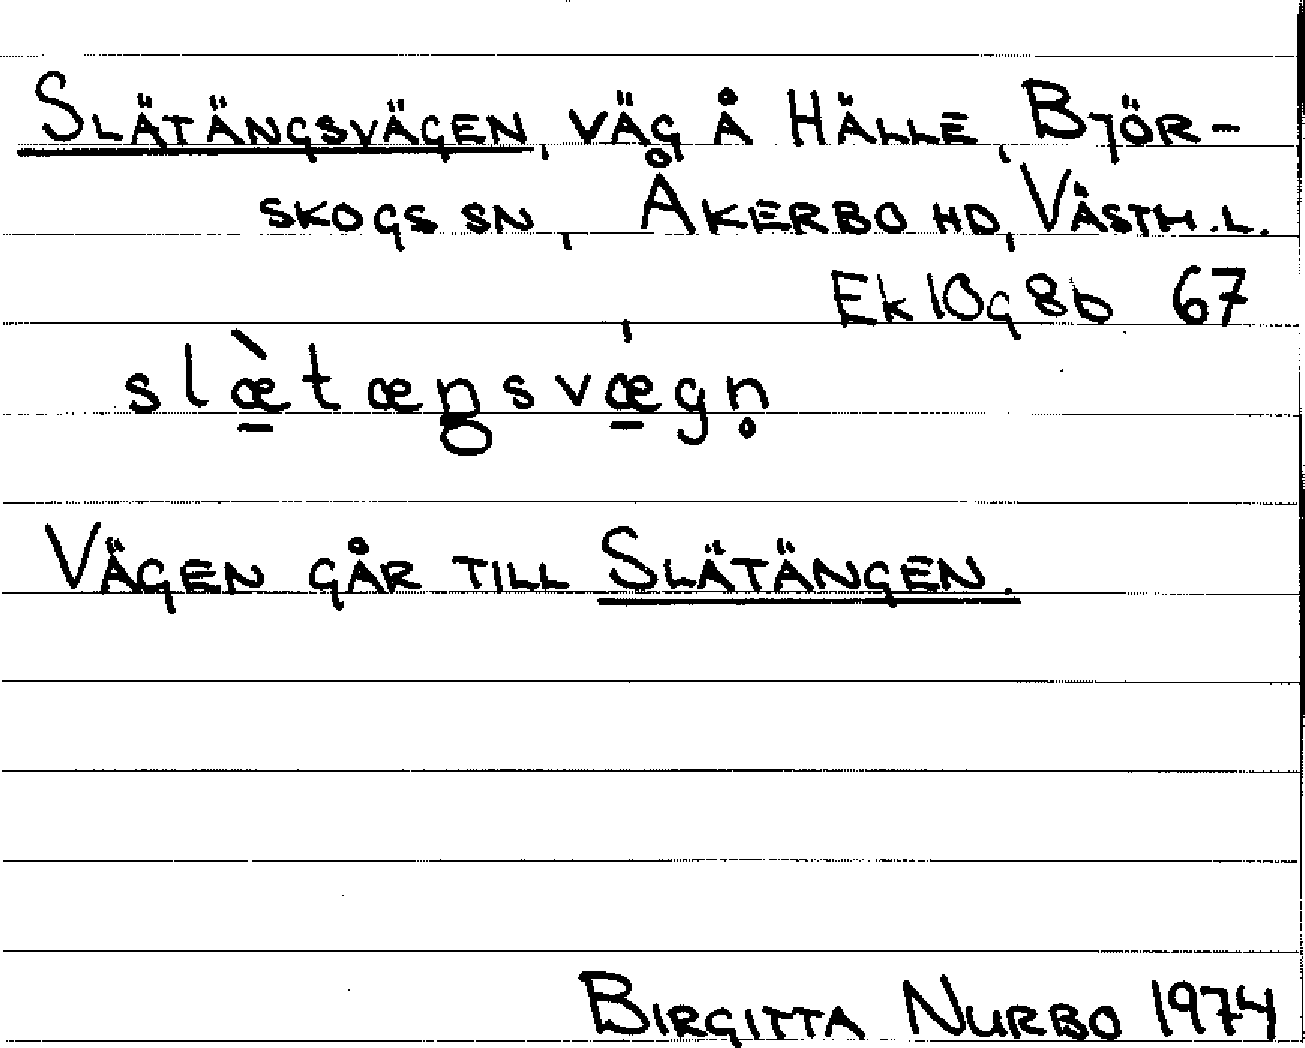 SLÄTÄNGSVÄGEN, VÄG Å HÄLLE, BJÖR-
SKOGS SN, ÅKERBO HD, VÄSTM.L.
Ek 10g 8b 67
slæ̱̀tæŋsvǽ̱gn̥
VÄGEN GÅR TILL SLÄTÄNGEN.
BIRGITTA NURBO 1974